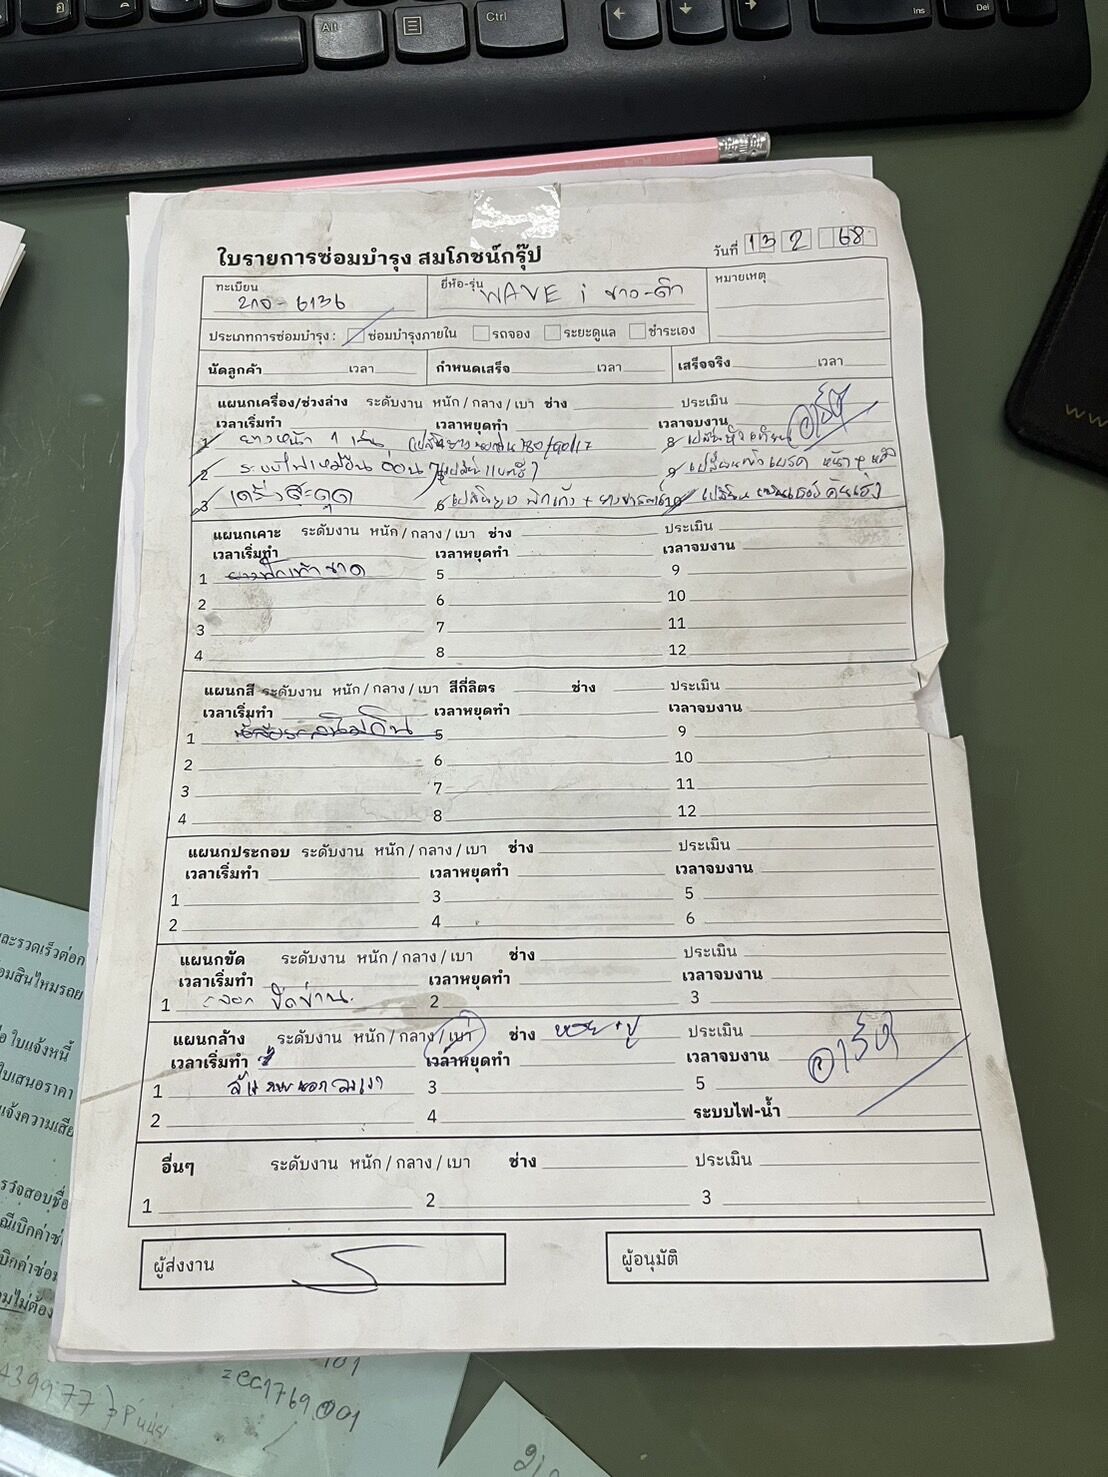 Alt
Ctrl
Ins
Del
ใบรายการซ่อมบำรุง สมโภชน์กรุ๊ป
วันที่ 13 2 68
ทะเบียน
2กอ-6136
ยี่ห้อ-รุ่น WAVE i ขาว-ดำ
หมายเหตุ
ประเภทการซ่อมบำรุง : ซ่อมบำรุงภายใน รถจอง ระยะดูแล ชำระเอง
นัดลูกค้า เวลา กำหนดเสร็จ เวลา เสร็จจริง เวลา
แผนกเครื่อง/ช่วงล่าง ระดับงาน หนัก / กลาง / เบา ช่าง ประเมิน
เวลาเริ่มทำ เวลาหยุดทำ เวลาจบงาน อาร์ต
1 ยางหน้า 1 เส้น (เปลี่ยนยางนอก 80/90/17 8 เปลี่ยนหัวเทียน
2 ระบบไฟเหมือนอ่อนๆ เปลี่ยนแบตรี่) 9 เปลี่ยนผ้าเบรค หน้า + หลัง
3 เครื่องสะดุด 6
แผนกเคาะ ระดับงาน หนัก / กลาง / เบา ช่าง ประเมิน
เวลาเริ่มทำ เวลาหยุดทำ เวลาจบงาน
1 ยางพักเท้าขาด 5 9
2 6 10
3 7 11
4 8 12
แผนกสี ระดับงาน หนัก / กลาง / เบา สีกี่ลิตร ช่าง ประเมิน
เวลาเริ่มทำ เวลาหยุดทำ เวลาจบงาน
1 5 9
2 6 10
3 7 11
4 8 12
แผนกประกอบ ระดับงาน หนัก / กลาง / เบา ช่าง ประเมิน
เวลาเริ่มทำ เวลาหยุดทำ เวลาจบงาน
1 3 5
2 4 6
แผนกขัด ระดับงาน หนัก / กลาง / เบา ช่าง ประเมิน
เวลาเริ่มทำ เวลาหยุดทำ เวลาจบงาน
1 2 3
แผนกล้าง ระดับงาน หนัก / กลาง / เบา ช่าง ประเมิน
เวลาเริ่มทำ เวลาหยุดทำ เวลาจบงาน อาร์ต
1 3 5
2 4 ระบบไฟ-น้ำ
อื่นๆ ระดับงาน หนัก / กลาง / เบา ช่าง ประเมิน
1 2 3
ผู้ส่งงาน
ผู้อนุมัติ
และรวดเร็วต่อก
อมสินไหมรถย
อ ใบแจ้งหนี้
ใบเสนอราคา
แจ้งความเสีย
รวจสอบชื่อ
ณีเบิกค่าซ่
เบิกค่าซ่อม
ามไม่ต้อง
101
439977
=CC1769